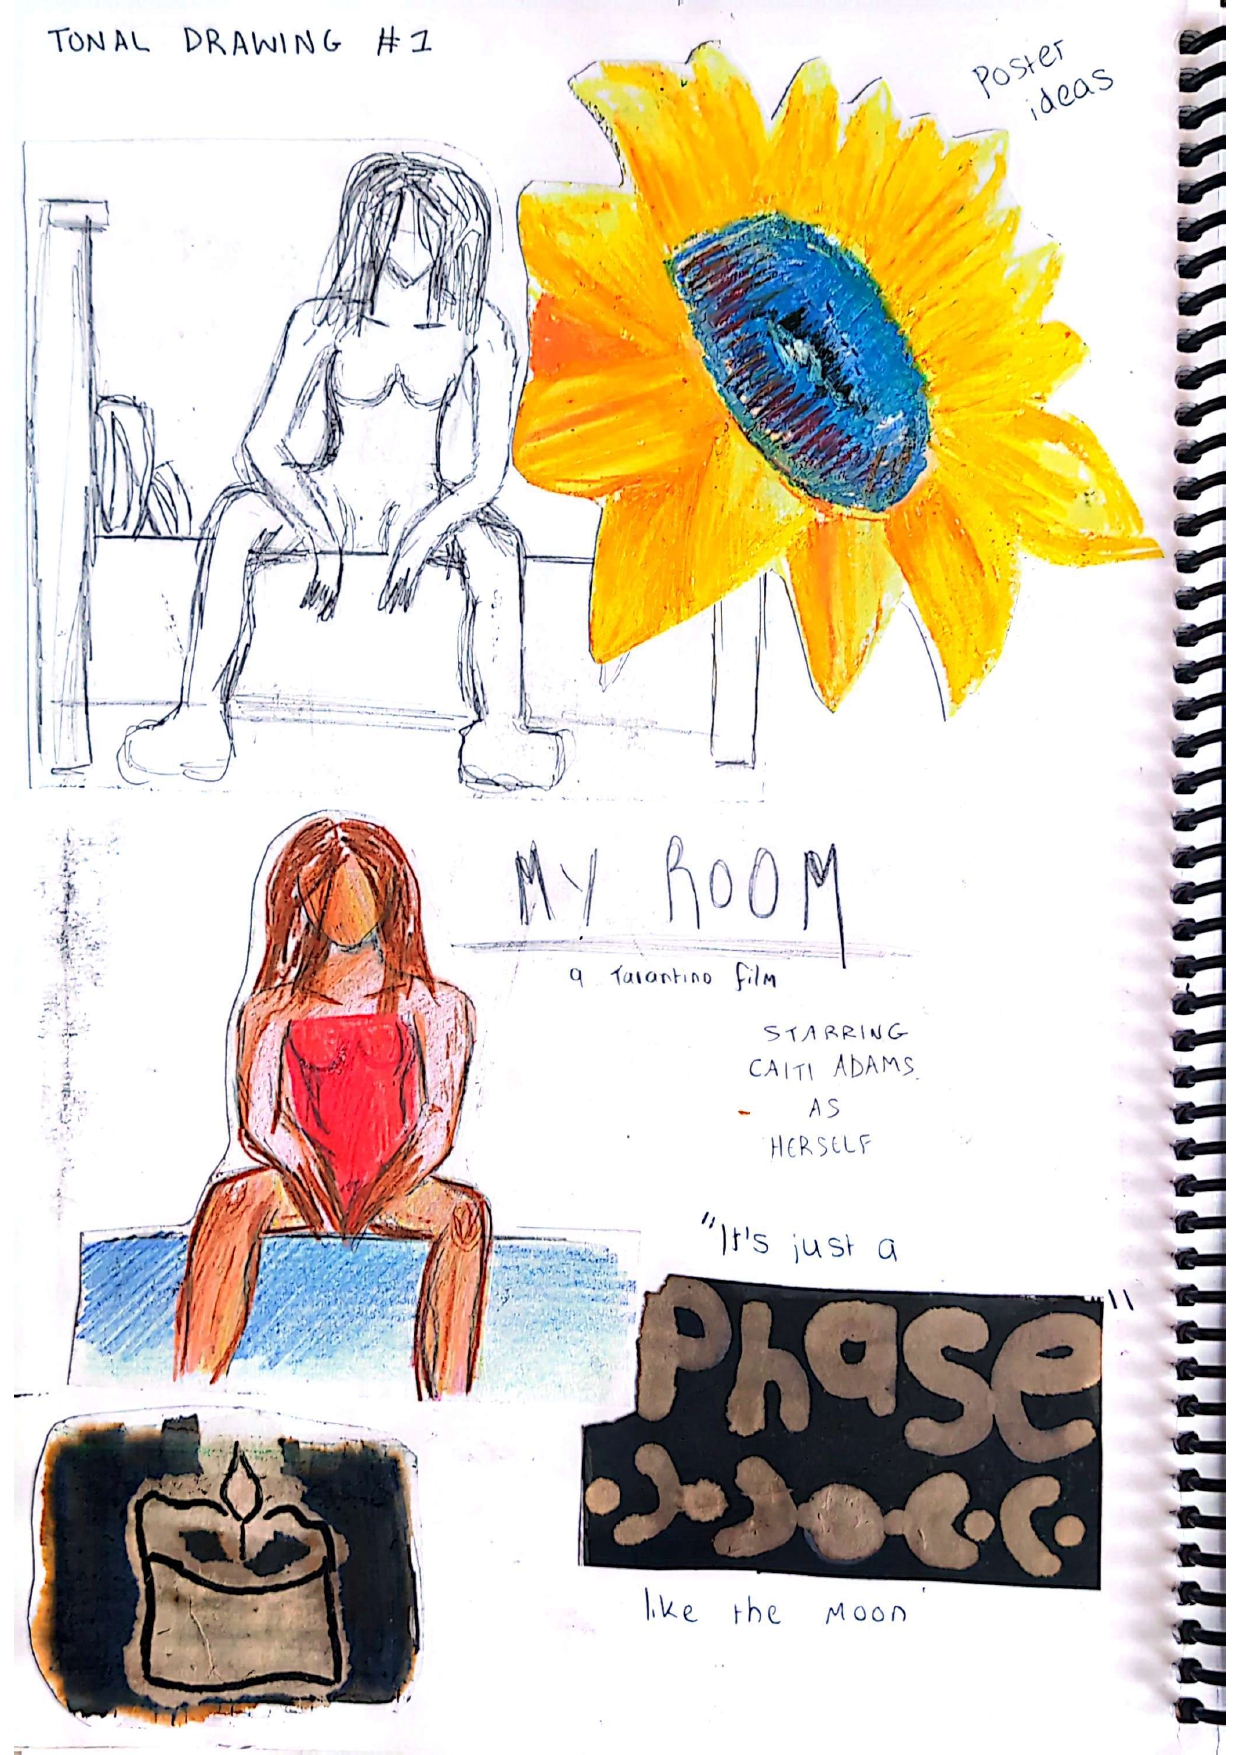 TONAL DRAWING #1
Poster
ideas
MY ROOM
a Tarantino film
STARRING
CAITI ADAMS
AS
HERSELF
"It's just a
Phase"
like the moon